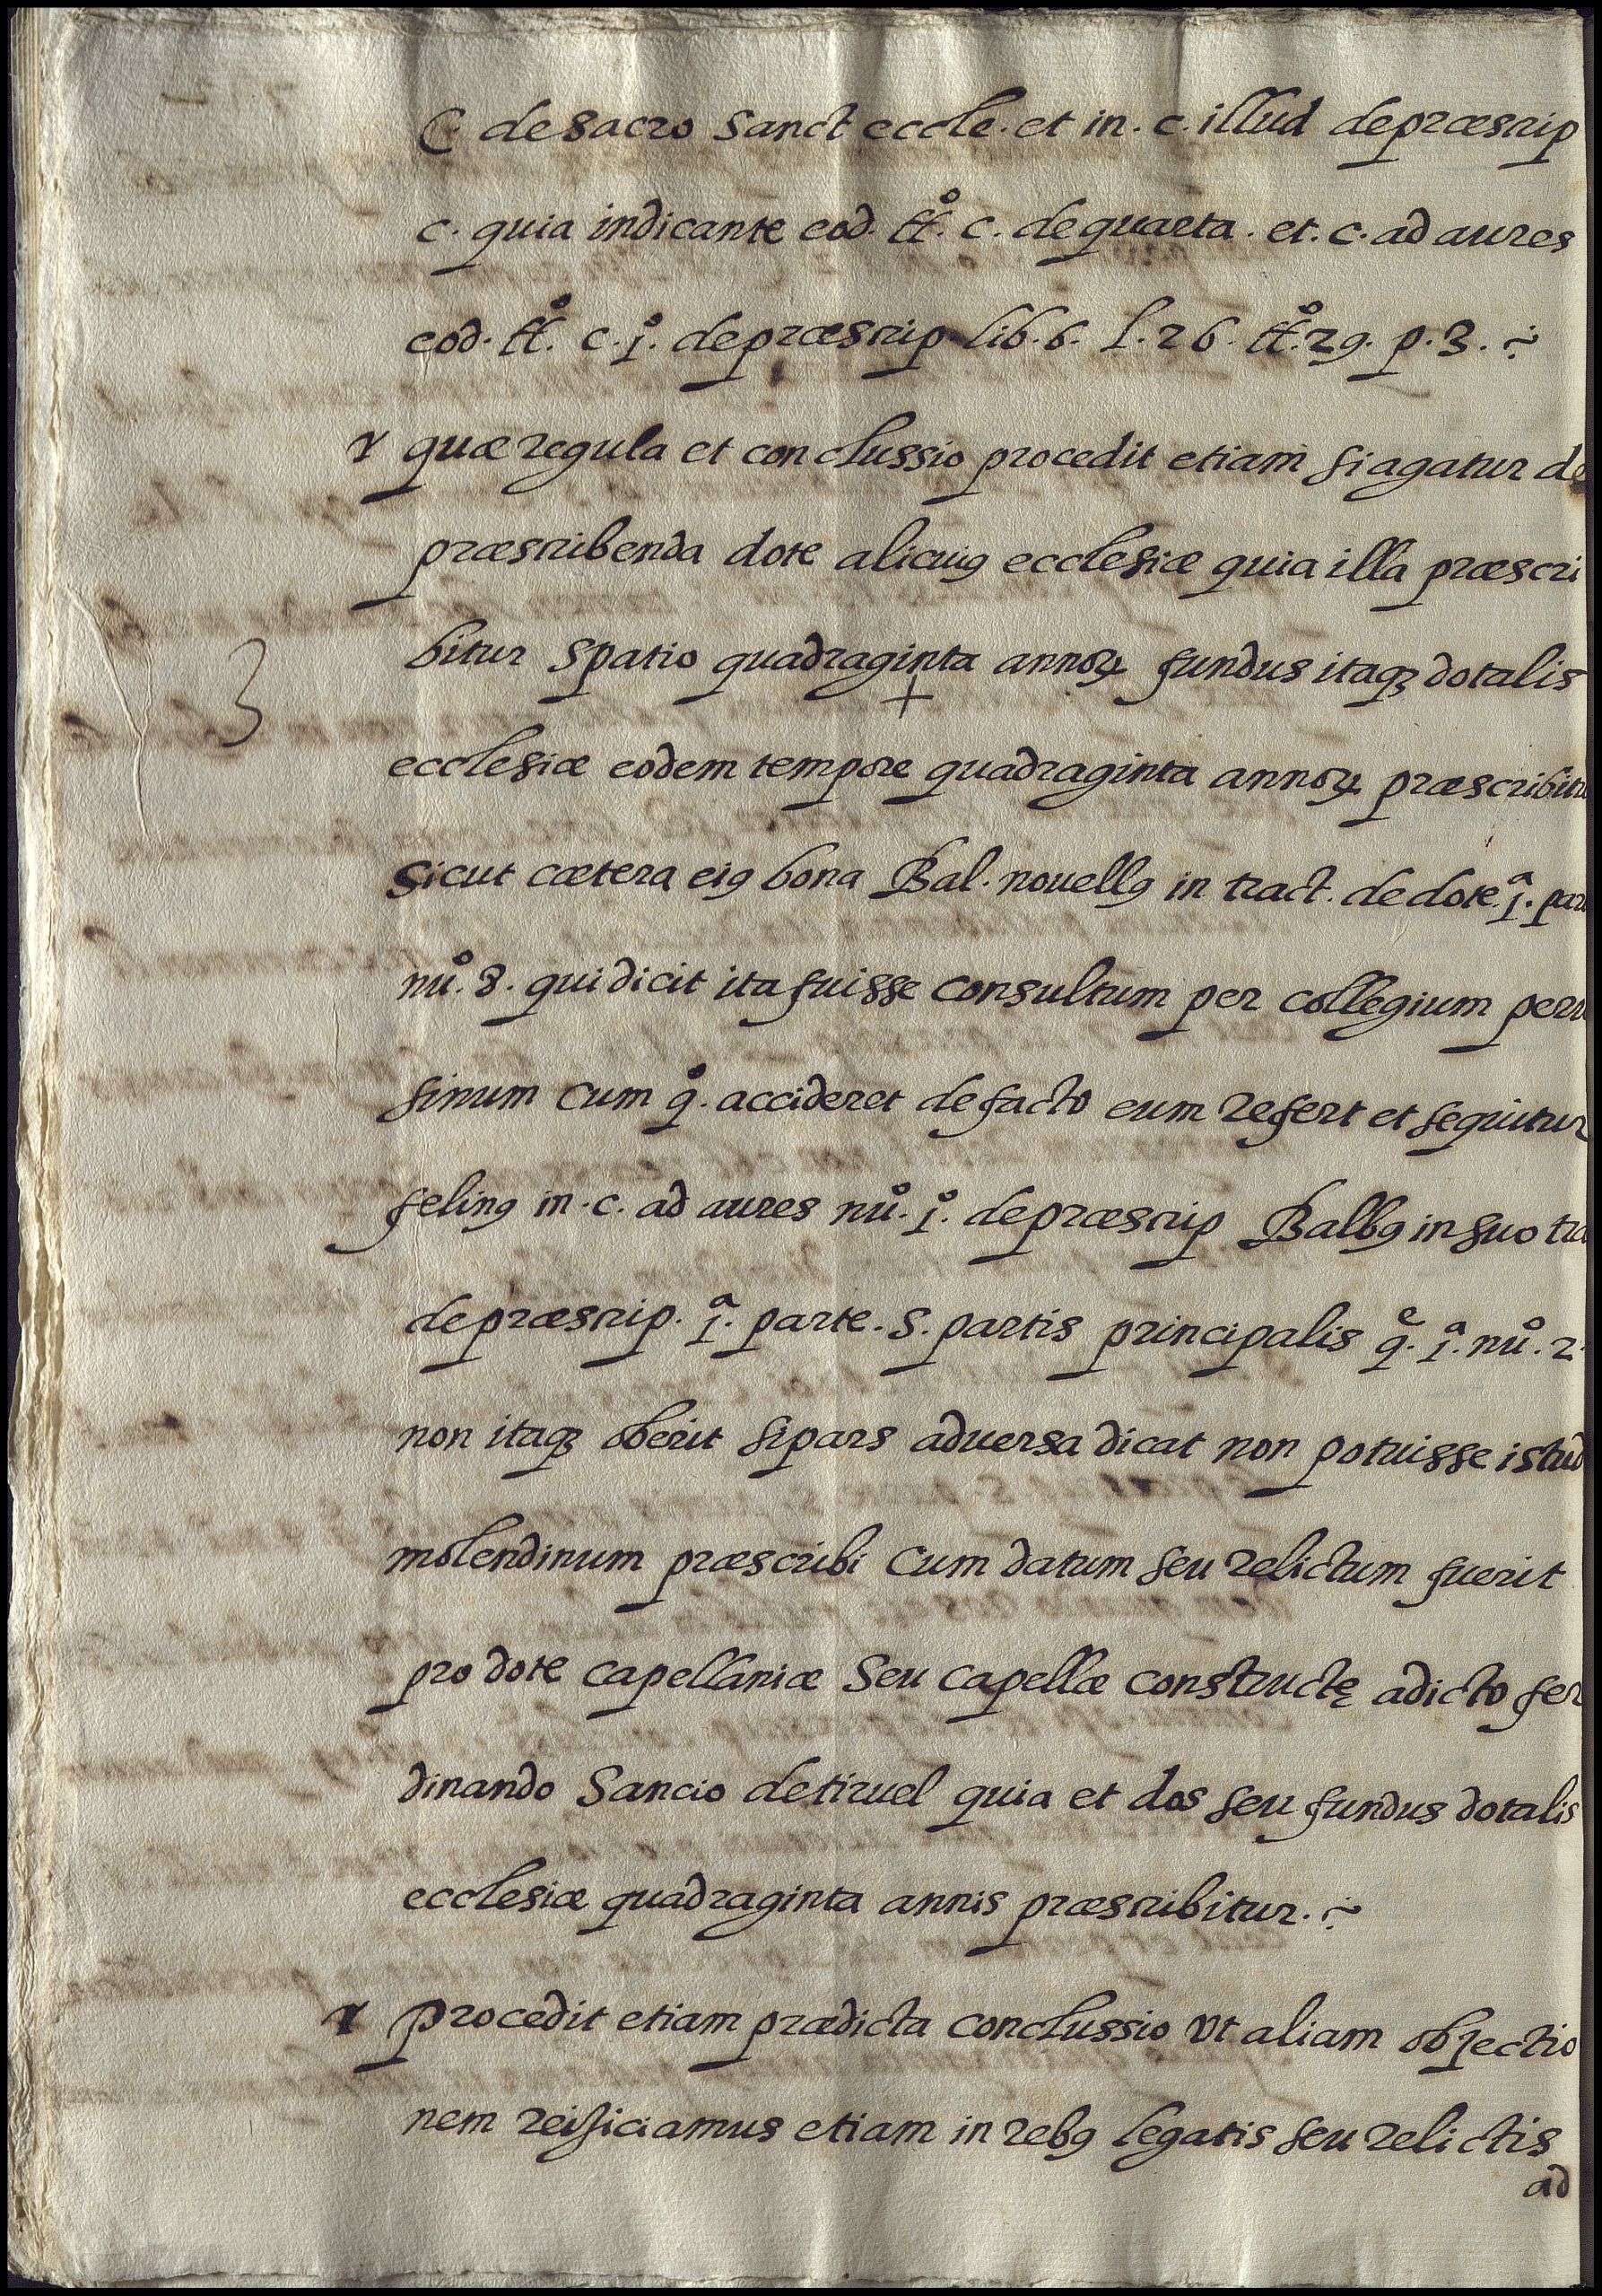 C. de sacro sanct eccle. et in. c. illud de præscrip
c. quia indicante eod. ttº. c. de quarta. et. c. ad aures
eod. ttº. c. jº. de præscrip lib. 6. l. 26. ttº. 29. p. 3.
quæ regula et conclussio procedit etiam si agatur de
præscribenda dote alicuiꝰ ecclesiæ quia illa præscri
bitur spatio quadraginta annoꝝ fundus itaqꝫ dotalis
3
ecclesiæ eodem tempore quadraginta annoꝝ præscribitu
sicut cætera eiꝰ bona Bal. nouellꝰ in tract. de dote jª. par
nuº. 8. qui dicit ita fuisse consultum per collegium peru
sinum cum qº. accideret de facto eum refert et sequitur
felinꝰ in. c. ad aures nuº. jº. de præscrip Balbꝰ in suo tra
de præscrip. jª. parte. 5. partis principalis qᵉ. jª. nuº. 2.
non itaqꝫ oberit si pars aduersa dicat non potuisse istud
molendinum præscribi cum datum seu relictum fuerit
pro dote capellaniæ seu capellæ constructę a dicto fer
dinando Sancio de tiruel quia et dos seu fundus dotalis
ecclesiæ quadraginta annis præscribitur.
procedit etiam prædicta conclussio vt aliam objectio
nem reijiciamus etiam in rebꝰ legatis seu relictis
ad